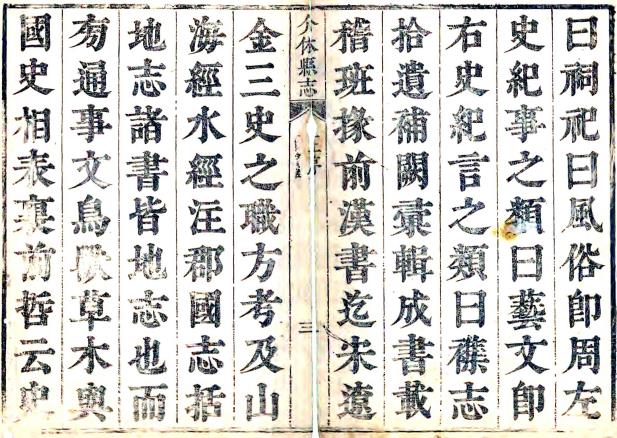 曰祠祀曰風俗卽周左
史紀事之類曰藝文卽
右史紀言之類曰襍志
拾遺補闕彙輯成書載
稽班掾前漢書迄宋遼
介休縣志
三
金三史之職方考及山
海經水經注郡國志括
地志諸書皆地志也而
旁通事文鳥獸草木與
國史相表裏前哲云史